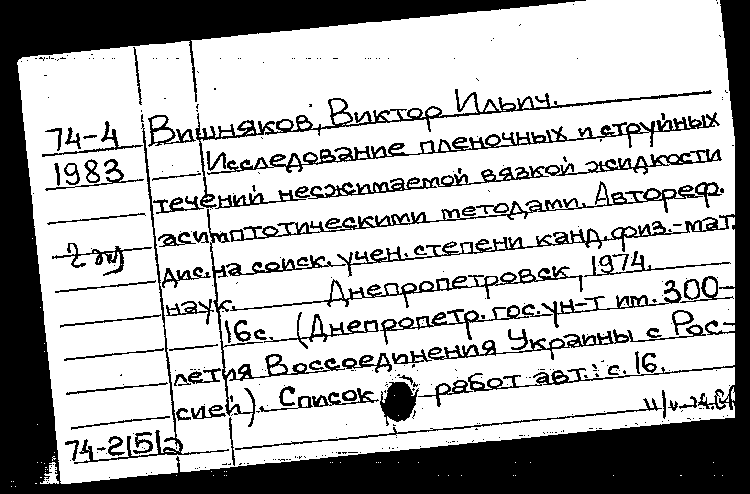 74-4 Вишняков, Виктор Ильич.
1983 Исследование пленочных и струйных
течений несжимаемой вязкой жидкости
2 асимптотическими методами. Автореф.
дис. на соиск. учен. степени канд. физ.-мат.
наук. Днепропетровск, 1974.
16с. (Днепропетр. гос. ун-т им. 300-
летия Воссоединения Украины с Рос-
сией). Список работ авт.: с. 16.
74-21512